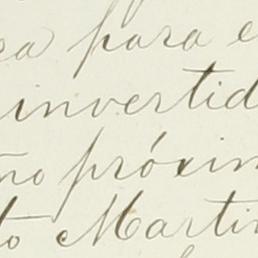 ca para e
invertid
ño próxim
to Martin